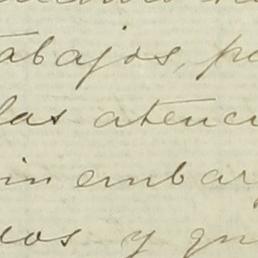 abajos, pa
las atenci
in embar
dos y qu